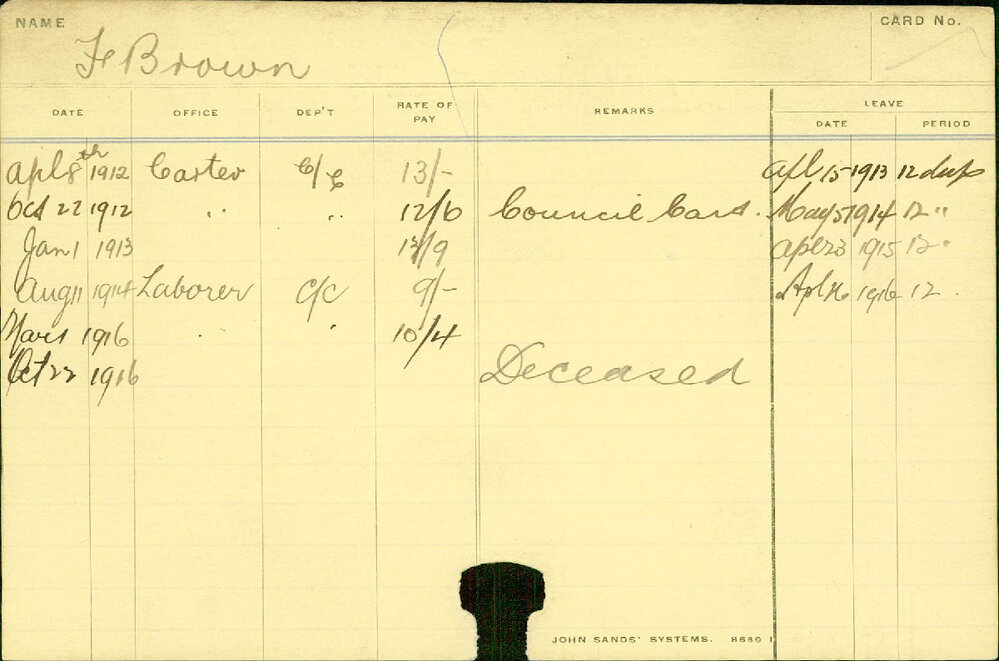 NAME CARD No.
F Brown
DATE OFFICE DEP'T RATE OF PAY REMARKS LEAVE
DATE PERIOD
Apl 8th 1912 Carter C/C 13/- Apl 15 1913 12 days
Oct 22 1912 " " 12/6 Council Cart. May 5 1914 12 "
Jan 1 1913 12/9 Apl 23 1915 12 "
Aug 11 1914 Laborer C/C 9/- Apl 16 1916 12 .
Mar 1 1916 " " 10/4
Oct 22 1916 Deceased
JOHN SANDS' SYSTEMS. 8689